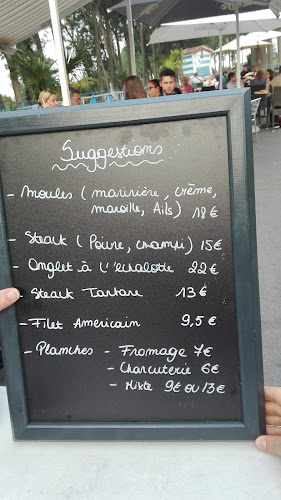 Suggestions
- Moules ( marinière, crème,
maroille, Ails) 18 €
- Steack ( Poivre, champi) 15€
- Onglet à L'échalotte 22 €
- Steack Tartare 13 €
- Filet Américain 9,5 €
- Planches - Fromage 7€
- Charcuterie 6€
- Mixte 9€ ou 13€